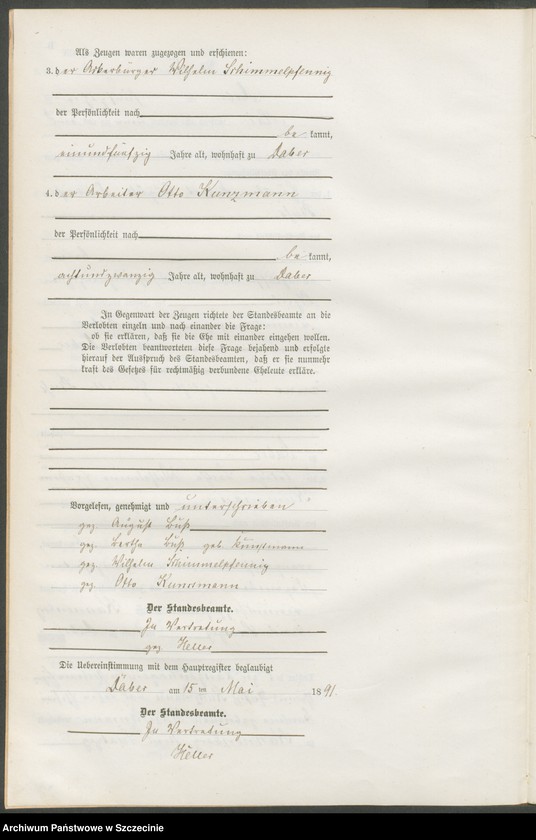 Als Zeugen waren zugezogen und erschienen:
3. d er Ackerbürger Wilhelm Schimmelpfennig
der Persönlichkeit nach
be kannt,
einundfünfzig Jahre alt, wohnhaft zu Daber
4. d er Arbeiter Otto Kunzmann
der Persönlichkeit nach
be kannt,
achtundzwanzig Jahre alt, wohnhaft zu Daber
In Gegenwart der Zeugen richtete der Standesbeamte an die
Verlobten einzeln und nach einander die Frage:
ob sie erklären, daß sie die Ehe mit einander eingehen wollen.
Die Verlobten beantworteten diese Frage bejahend und erfolgte
hierauf der Ausspruch des Standesbeamten, daß er sie nunmehr
kraft des Gesetzes für rechtmäßig verbundene Eheleute erkläre.
Vorgelesen, genehmigt und unterschrieben
gez. August Buß
gez. Bertha Buß geb. Kunzmann
gez. Wilhelm Schimmelpfennig
gez. Otto Kunzmann
Der Standesbeamte.
In Vertretung
gez. Heller
Die Uebereinstimmung mit dem Hauptregister beglaubigt
Daber am 15 ten Mai 1891.
Der Standesbeamte.
In Vertretung
Heller
Archiwum Państwowe w Szczecinie